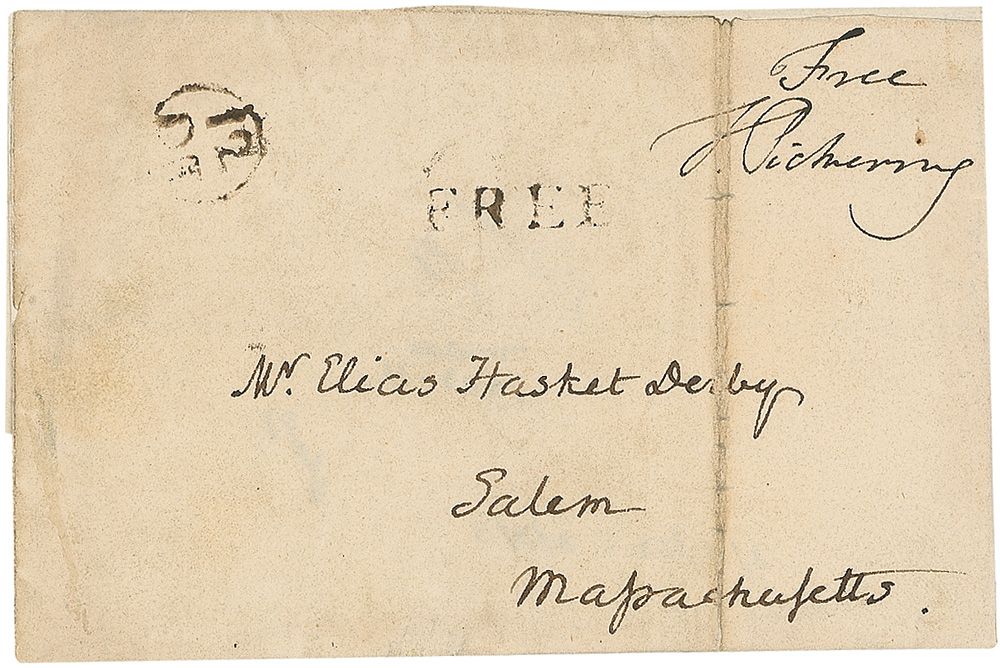 Free
T Pickering
FREE
Mr. Elias Hasket Derby
Salem
Maſsachuſetts.